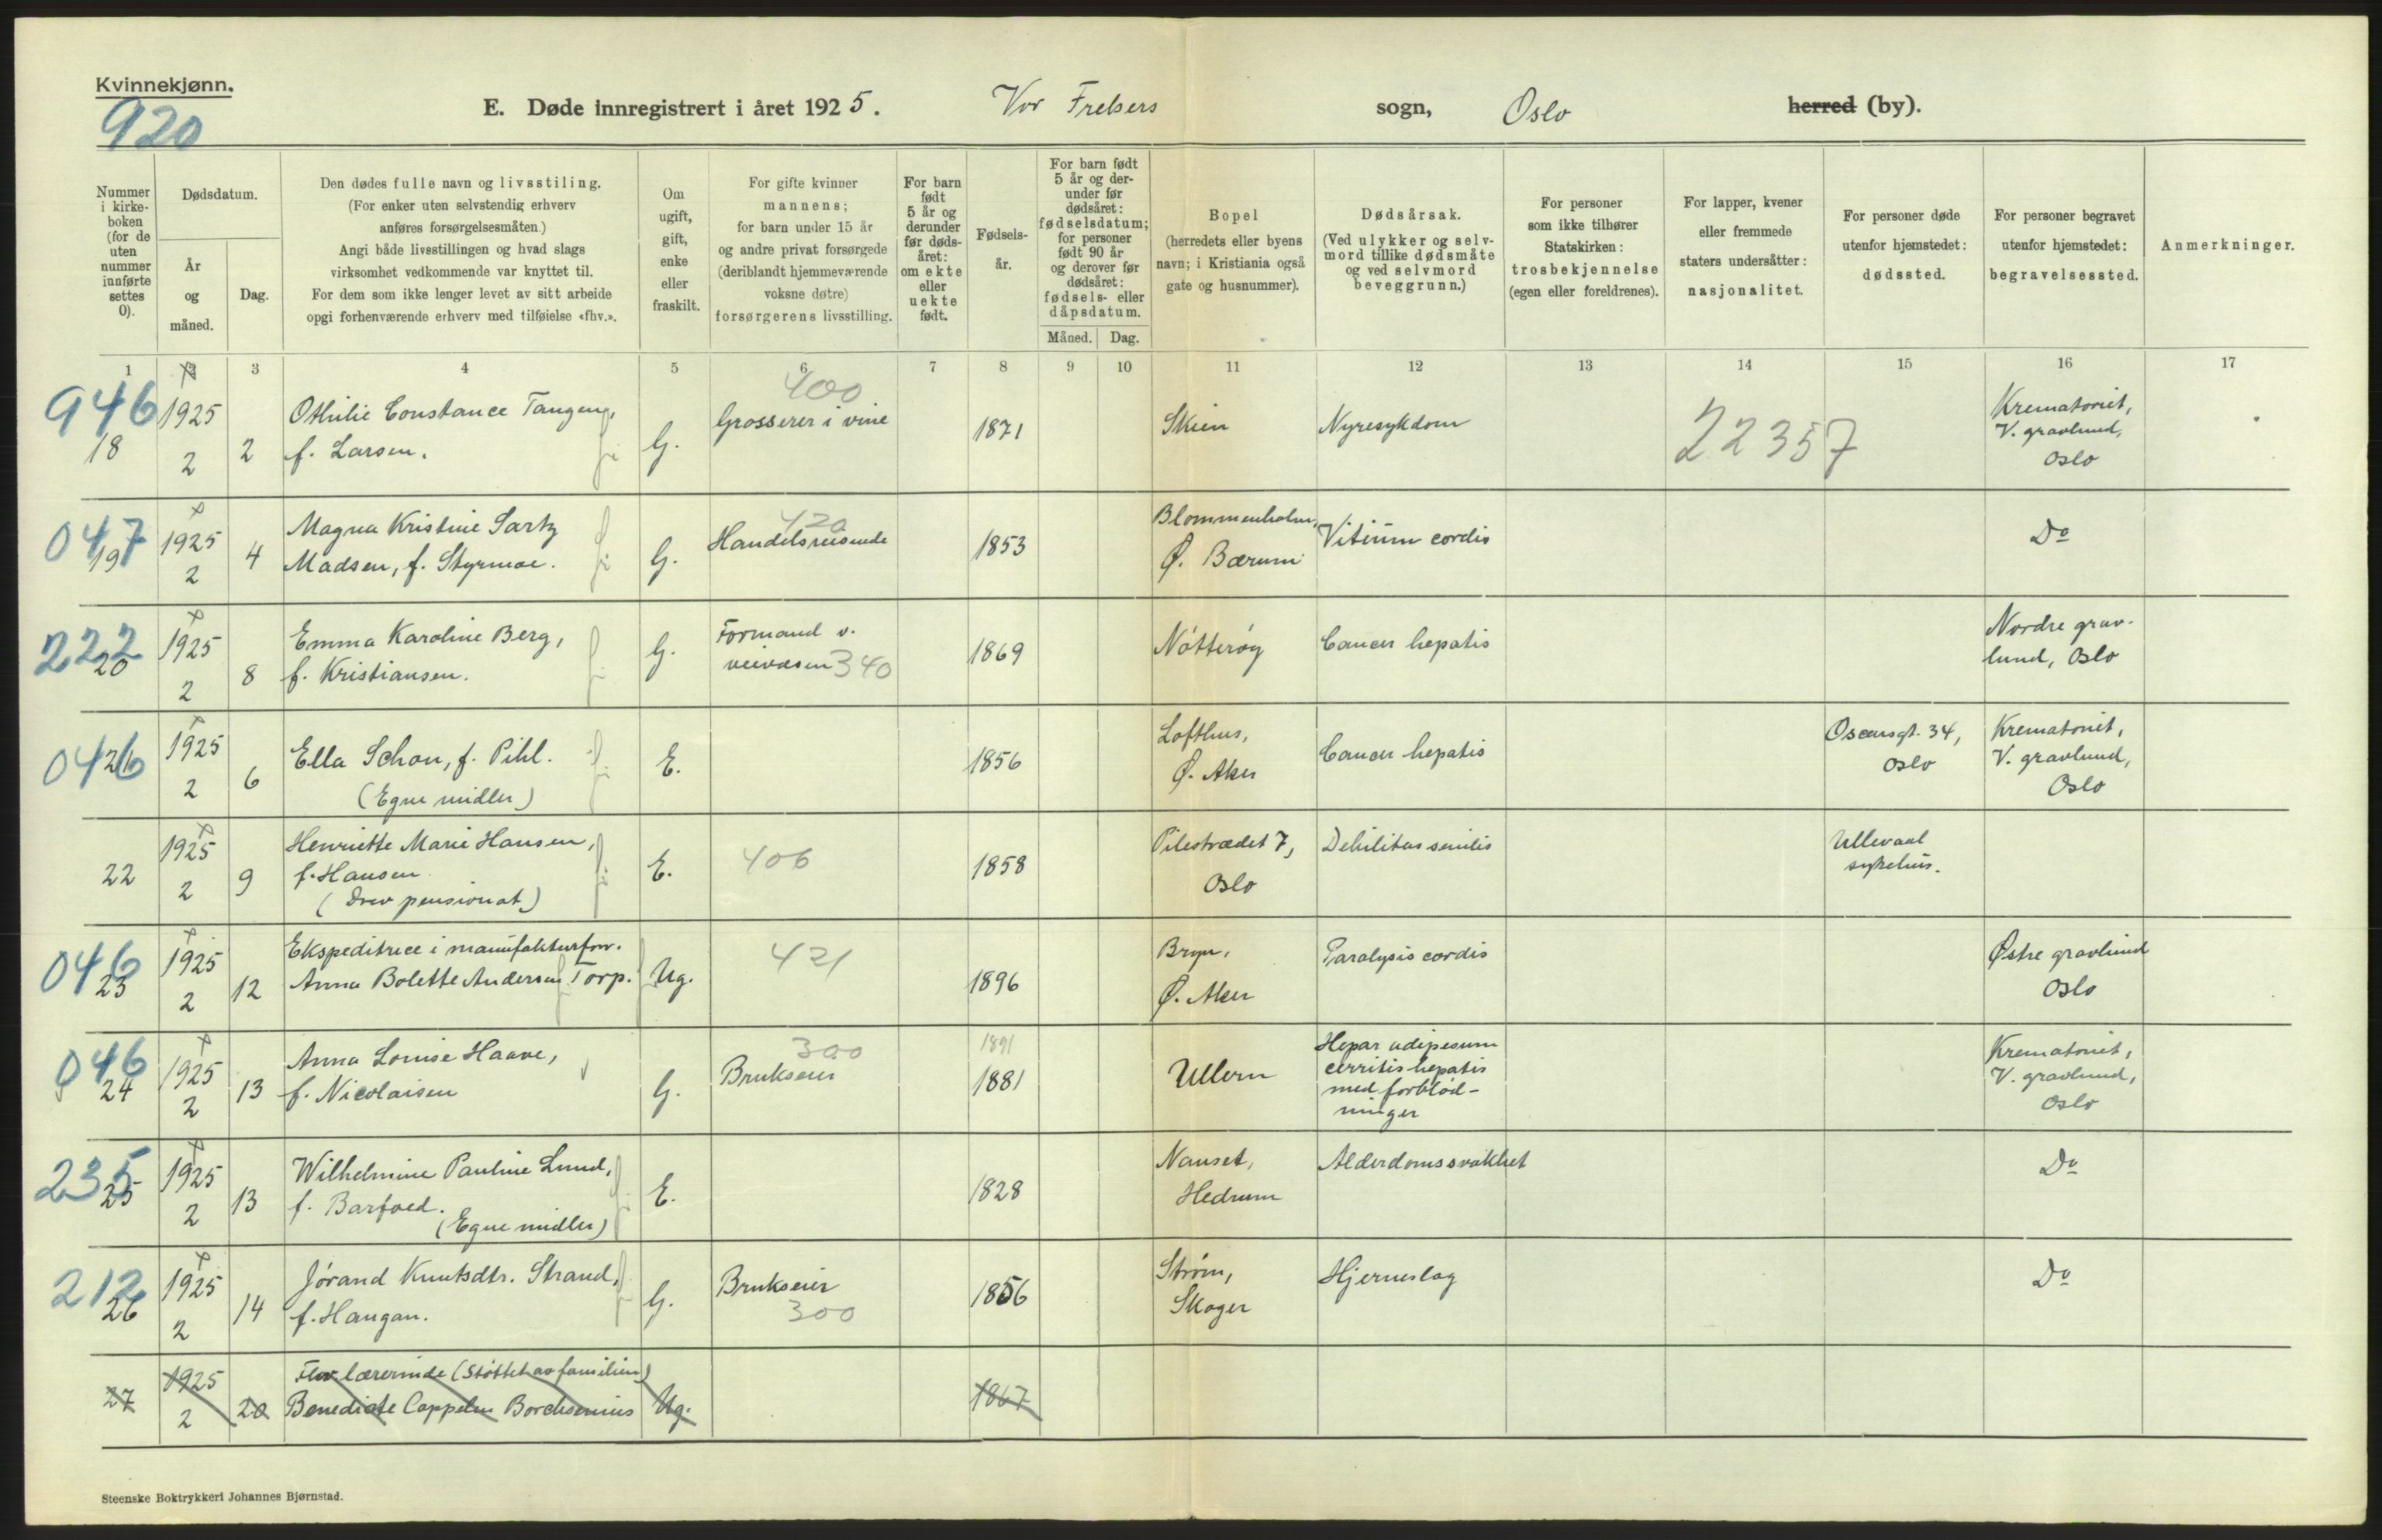 Kvinnekjønn.
920
E. Døde innregistrert i året 1925. Vor Frelsers sogn, Oslo herred (by).
Nummer i kirkeboken (for de uten nummer innførte settes 0).
Dødsdatum.
År og måned.
Dag.
Den dødes fulle navn og livsstiling.
(For enker uten selvstendig erhverv
anføres forsørgelsesmåten.)
Angi både livsstillingen og hvad slags
virksomhet vedkommende var knyttet til.
For dem som ikke lenger levet av sitt arbeide
opgi forhenværende erhverv med tilføielse «fhv.».
Om ugift, gift, enke eller fraskilt.
For gifte kvinner
mannens;
for barn under 15 år
og andre privat forsørgede
(deriblandt hjemmeværende
voksne døtre)
forsørgerens livsstilling.
For barn født 5 år og derunder før dødsåret: om ekte eller uekte født.
Fødselsår.
For barn født
5 år og derunder før
dødsåret:
fødselsdatum;
for personer
født 90 år
og derover før
dødsåret:
fødsels- eller
dåpsdatum.
Måned. Dag.
Bopel
(herredets eller byens
navn; i Kristiania også
gate og husnummer).
Dødsårsak.
(Ved ulykker og selvmord tillike dødsmåte
og ved selvmord
beveggrunn.)
For personer
som ikke tilhører
Statskirken:
trosbekjennelse
(egen eller foreldrenes).
For lapper, kvener
eller fremmede
staters undersåtter:
nasjonalitet.
For personer døde
utenfor hjemstedet:
dødssted.
For personer begravet
utenfor hjemstedet:
begravelsessted.
Anmerkninger.
1 2 3 4 5 6 7 8 9 10 11 12 13 14 15 16 17
946
18 1925 2 2 Othilie Constance Tangen, f. Larsen. G. 400 Grosserer i vine 1871 Skien Nyresykdom 22357 Krematoriet, V. gravlund, Oslo
047
19 1925 2 4 Magna Kristine Sartz Madsen, f. Styrmoe. G. 420 Handelsreisende 1853 Blommenholm, Ø. Bærum Vitium cordis Do
222
20 1925 2 8 Emma Karoline Berg, f. Kristiansen. G. Formand v. veivæsen 340 1869 Nøtterøy Cancer hepatis Nordre gravlund, Oslo
046
21 1925 2 6 Ella Schou, f. Pihl. (Egne midler) E. 1856 Lofthus, Ø. Aker Cancer hepatis Oscarsgt. 34, Oslo Krematoriet, V. gravlund, Oslo
22 1925 2 9 Henriette Marie Hansen, f. Hansen. (Drev pensionat) E. 406 1858 Pilestrædet 7, Oslo Debilitas senilis Ullevaal sykehus.
046
23 1925 2 12 Ekspeditrice i manufakturforr. Anna Bolette Andersen Torp. Ug. 421 1896 Bryn, Ø. Aker Paralysis cordis Østre gravlund Oslo
046
24 1925 2 13 Anna Louise Haave, f. Nicolaisen G. 300 Brukseier 1891 1881 Ullern Hepar adipesum cirritis hepatis med forblødninger Krematoriet, V. gravlund, Oslo
235
25 1925 2 13 Wilhelmine Pauline Lund, f. Barfoed. (Egne midler) E. 1828 Nanset, Hedrum Alderdomssvakhet Do
212
26 1925 2 14 Jørand Knutsdtr. Strand, f. Haugan. G. Brukseier 300 1856 Strøm, Skoger Hjerneslag Do
27 1925 2 20 Fhv. lærerinde (Støttet av familien) Benedicte Cappelen Borchsenius Ug. 1867
Steenske Boktrykkeri Johannes Bjørnstad.